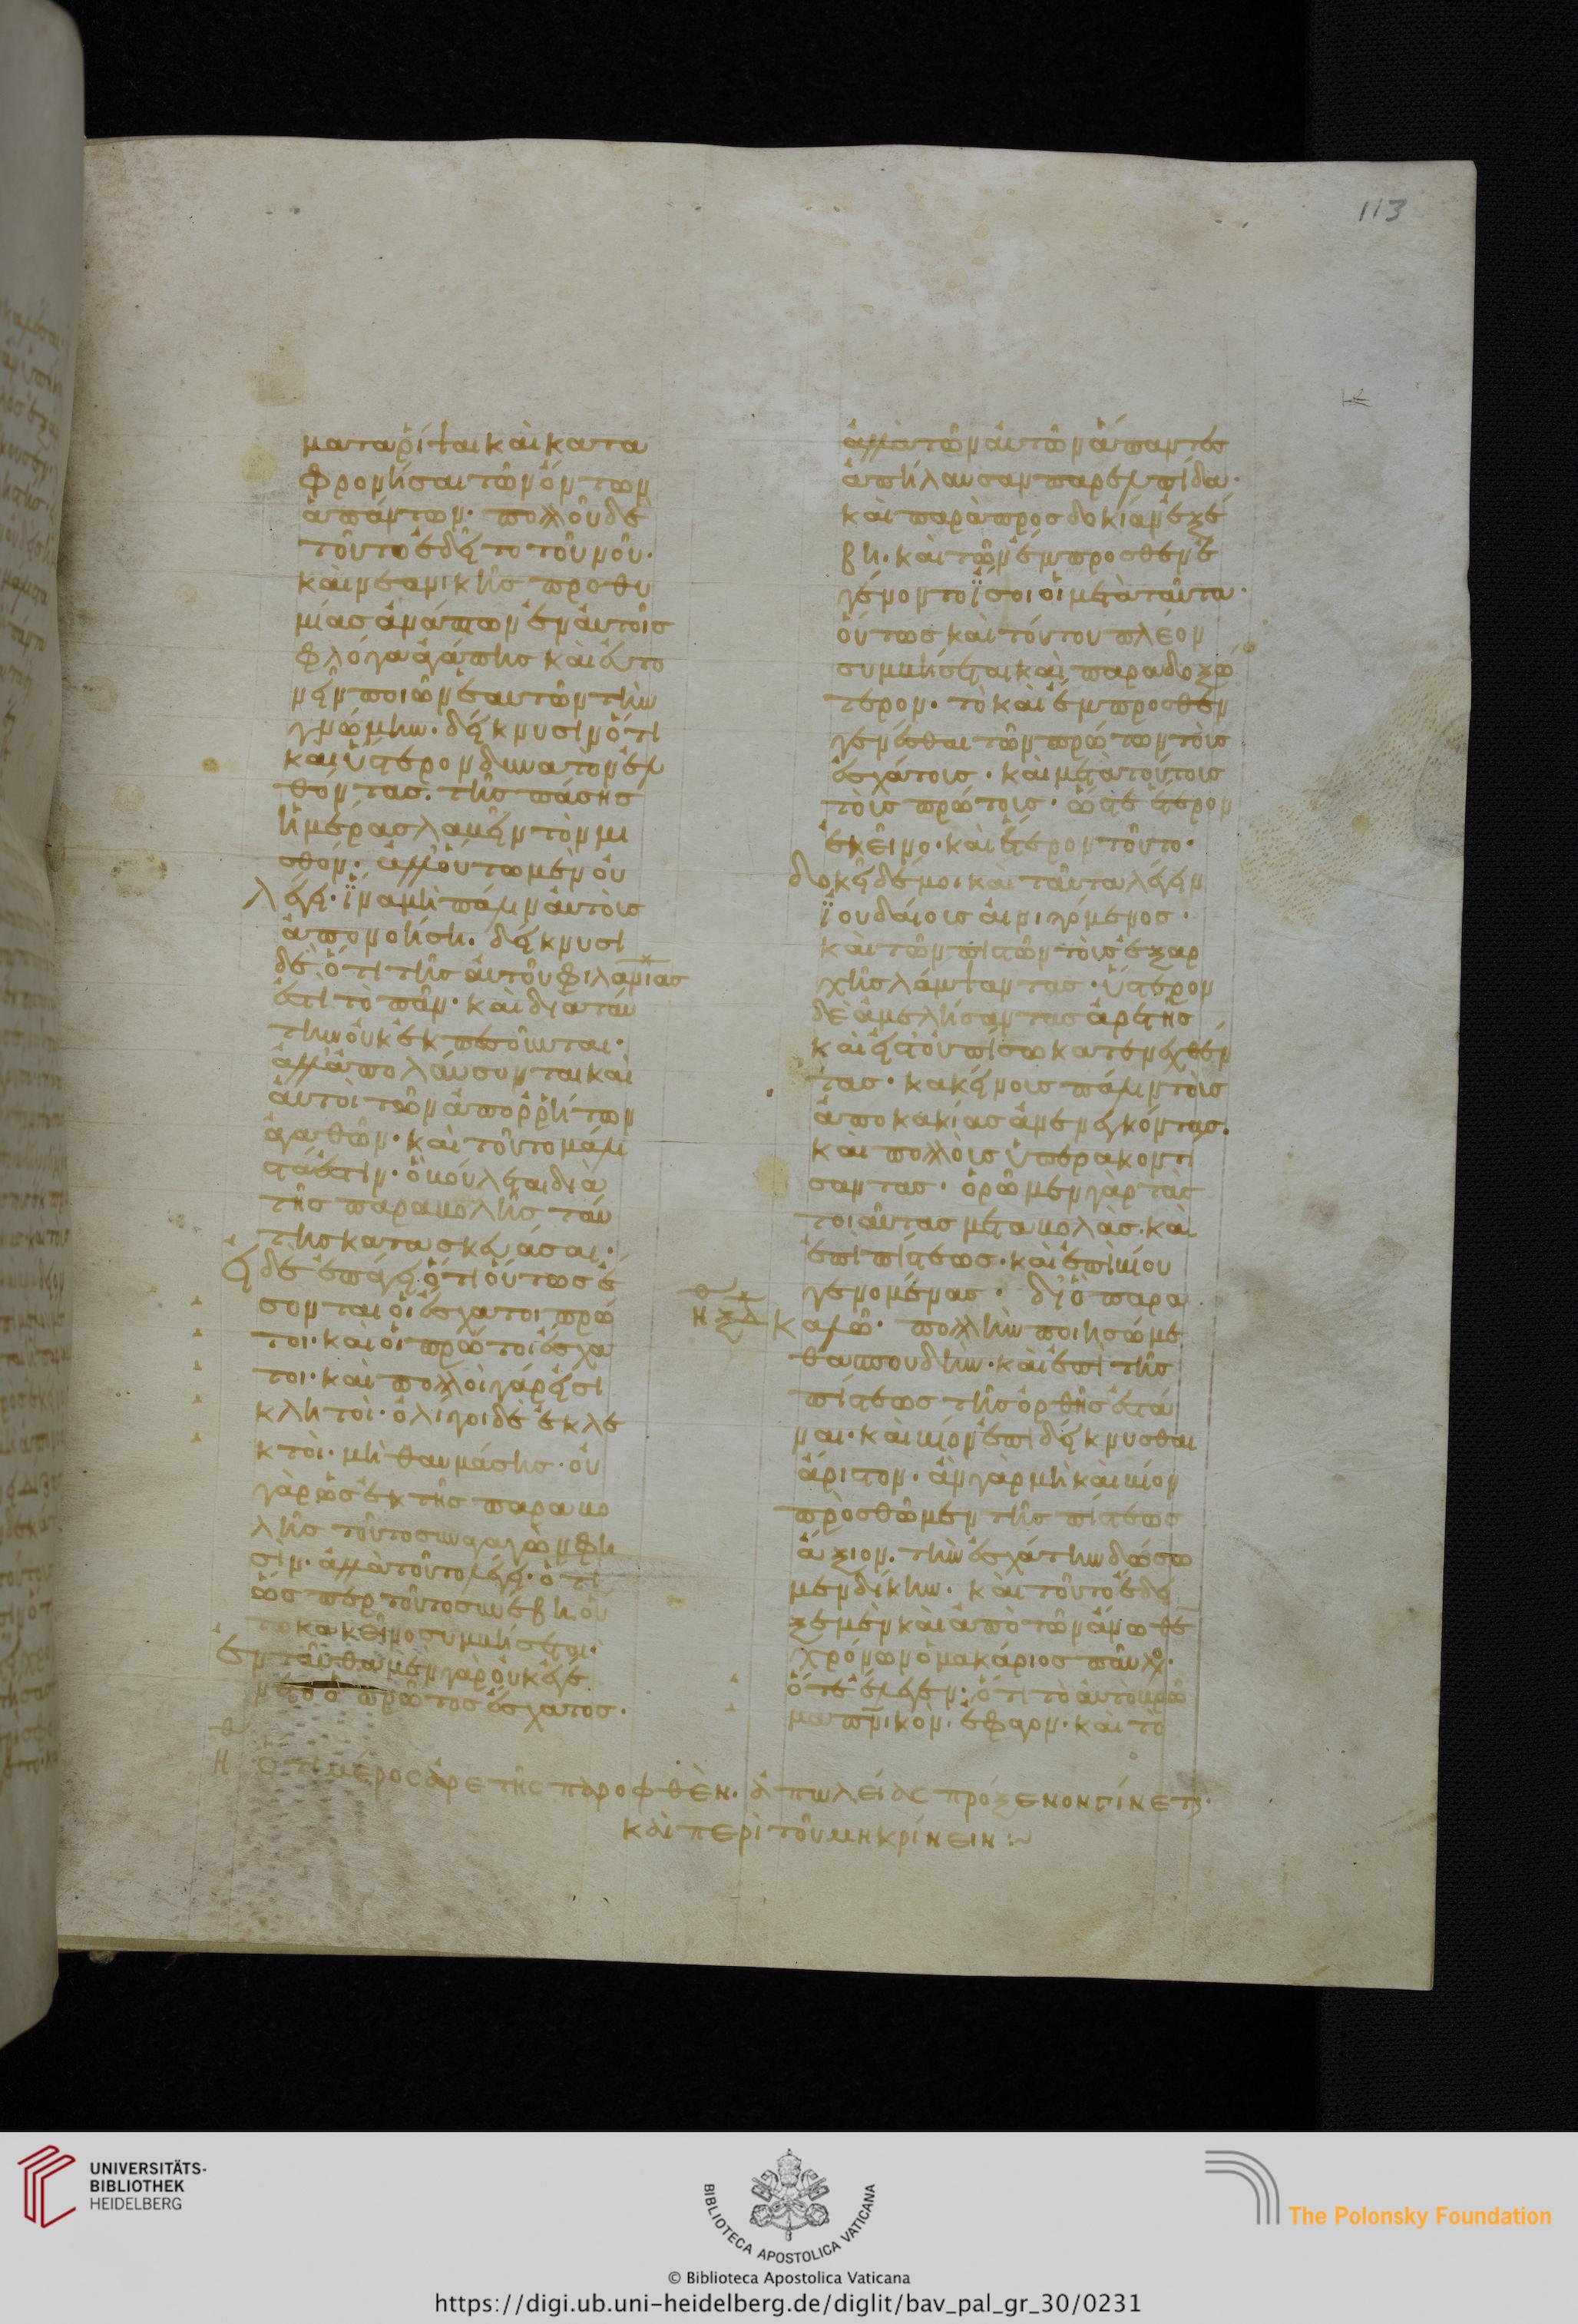 ματα ῥίψαι καὶ κατα
φρονῆσαι τῶν ὄντων
ἁπάντων· πολλοῦ δὲ
τοῦτο ἐδεῖτο τοῦ νοῦ·
καὶ νεανικῆς προθυ
μίας ἀνάπτων ἐν αὐτοῖς
φλόγα ἀγάπης καὶ εὔτο
νον ποιῶν ἑαυτῶν τὴν
γνώμην· δείκνυσιν ὅτι
καὶ ὕστερον δυνατὸν ἐλ
θόντας· τῆς πάσης
ἡμέρας λαβεῖν τὸν μι
σθόν· ἀλλ' οὕτω μὲν οὐ
λέγει· ἵνα μὴ πάλιν αὐτοὺς
ἀπονοήσῃ· δείκνυσι
δὲ ὅτι τῆς αὐτοῦ φιλανιας
ἐστὶ τὸ πᾶν· καὶ διὰ ταύ
την οὐκ ἐκπεσοῦνται·
ἀλλ' ἀπολαύσονται καὶ
αὐτοὶ τῶν ἀπορρήτων
ἀγαθῶν· καὶ τοῦτο μάλι
στά ἐστιν· ὃ βούλεται διὰ
τῆς παραβολῆς ταύ
της κατασκευάσαι·
εἰ δὲ ἐπάγει ὅτι οὕτως ἔ
σονται οἱ ἔσχατοι πρῶ
τοι· καὶ οἱ πρῶτοι ἔσχα
τοι· καὶ πολλοὶ γάρ εἰσι
κλητοί· ὀλίγοι δὲ ἐκλε
κτοί· μὴ θαυμάσῃς· οὐ
γὰρ ὡς ἐκ τῆς παραβο
λῆς τοῦτο συναγαγών φη
σιν· ἀλλὰ τοῦτο λέγει· ὅτι
ὥσπερ τοῦτο συνέβη οὕ
τω κἀκεῖνο συμβήσεται·
ἐνταῦθα μὲν γὰρ οὐκ ἐγέ
νετο ὁ πρῶτος ἔσχατος·
ἀλλὰ τῶν αὐτῶν ἅπαντες
ἀπήλαυσαν παρ' ἐλπίδα·
καὶ παρὰ προσδοκίαν ἐξέ
βη· καὶ τῶν ἔμπροσθεν ἐ
γένοντο ἴσοι οἱ μετὰ ταῦτα·
οὕτως καὶ τούτου πλέον
συμβήσεται καὶ παραδοξό
τερον· τὸ καὶ ἔμπροσθεν
γενέσθαι τῶν πρώτων τοὺς
ἐσχάτους· καὶ μετὰ τούτους
τοὺς πρώτους· ὥστε ἕτερον
ἐκεῖνο· καὶ ἕτερον τοῦτο·
δοκεῖ δέ μοι καὶ ταῦτα λέγειν
ἰουδαίοις αἰνιττόμενος·
καὶ τῶν πιστῶν τοὺς ἐξ ἀρ
χῆς λάμψαντας· ὕστερον
δὲ ἀμελήσαντας ἀρετῆς
καὶ εἰς τοὐπίσω κατενεχθέν
τας· κἀκείνους πάλιν τοὺς
ἀπὸ κακίας ἀνενεγκόντας·
καὶ πολλοὺς ὑπερακοντί
σαντας· ὁρῶμεν γὰρ τὰς
τοιαύτας μεταβολὰς· καὶ
ἐπὶ πίστεως· καὶ ἐπὶ βίου
γενομένας· διὸ παρα
καλῶ· πολλὴν ποιησώμε
θα σπουδὴν· καὶ ἐπὶ τῆς
πίστεως τῆς ὀρθῆς ἑστά
ναι· καὶ βίον ἐπιδείκνυσθαι
ἄριστον· ἂν γὰρ μὴ καὶ βίον
πρὸσθῶμεν τῆς πίστεως
ἄξιον· τὴν ἐσχάτην δώσο
μεν δίκην· καὶ τοῦτο ἔδει
ξε μὲν καὶ ἀπὸ τῶν ἄνωθε
χρόνων ὁ μακάριος παῦλος·
ὅτε ἔλεγεν· ὅτι τὸ αὐτὸ βρῶ
μα πνικὸν· ἔφαγον· καὶ τὸ
ὅτι μέρος ἀρετῆς παροφθὲν· ἀπωλείας πρόξενον γίνεται·
καὶ περὶ τοῦ μὴ κρίνειν:~
113
UNIVERSITÄTS-
BIBLIOTHEK
HEIDELBERG
BIBLIOTECA APOSTOLICA VATICANA
The Polonsky Foundation
© Biblioteca Apostolica Vaticana
https://digi.ub.uni-heidelberg.de/diglit/bav_pal_gr_30/0231